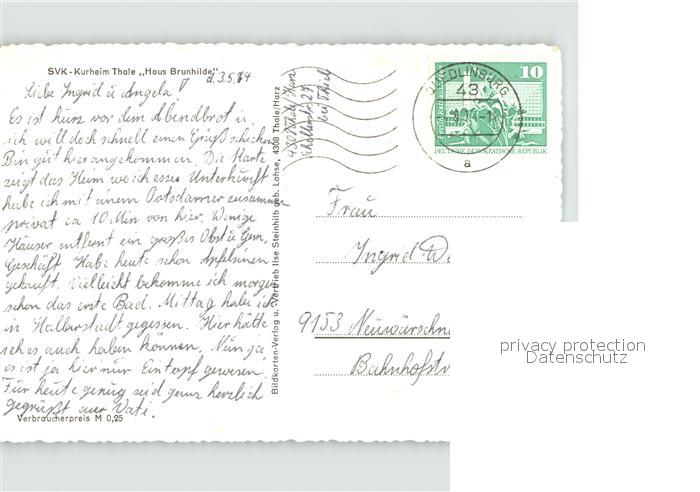 SVK - Kurheim Thale „Haus Brunhilde"
d. 3.5.74
Liebe Ingrid u Angela!
Es ist kurz vor dem Abendbrot u
ich will doch schnell einen Gruß schicken
Bin gut hier angekommen. Die Karte
zeigt das Heim wo ich esse. Unterkunft
habe ich mit einem Potsdamer zusammen
privat ca 10 Min von hier. Wenige
Häuser entfernt ein großes Obst u Gem.
Geschäft. Habe heute schon Apfelsinen
gekauft. Vielleicht bekomme ich morgen
schon das erste Bad. Mittag habe ich
in Hallerstadt gegessen. Hier hätte
ich es auch haben können. Nun ja
es ist ja hier nur Eintopf gewesen.
Für heute genug seid ganz herzlich
gegrüßt euer Vati.
Verbraucherpreis M 0,25
Bildkarten-Verlag u. Vertrieb Ilse Steinhilb geb. Lohse, 4308 Thale/Harz
bei Thiel
QUEDLINBURG
43
a
10
DEUTSCHE DEMOKRATISCHE REPUBLIK
Frau
Ingrid W.
9153 Neuwürschn
Bahnhofstr
privacy protection
Datenschutz